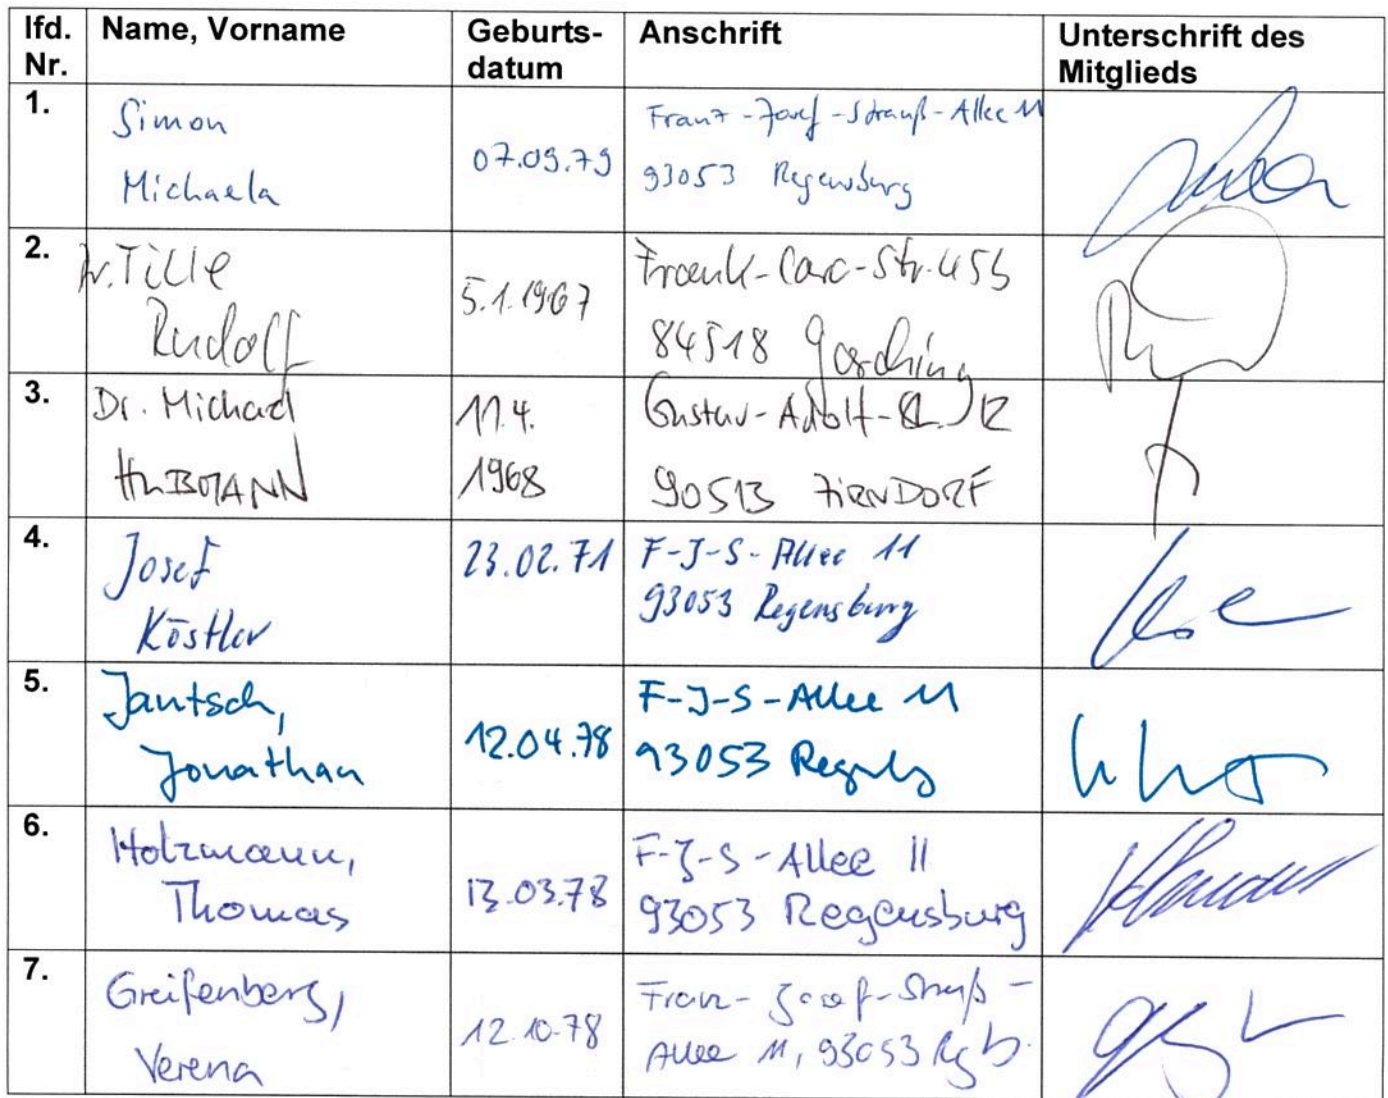 lfd. Nr.
Name, Vorname
Geburts-
datum
Anschrift
Unterschrift des
Mitglieds
1.
Simon
Michaela
07.09.79
Franz-Josef-Strauß-Allee 11
93053 Regensburg
2.
Dr. Tille
Rudolf
5.1.1967
Frank-Caro-Str.
84518 Garching
3.
Dr. Michael
11.4.
1968
Gustav-Adolf-Str. 12
90513 ZIRNDORF
4.
Josef
Köstler
23.02.71
F-J-S-Allee 11
93053 Regensburg
5.
Jantsch,
Jonathan
12.04.78
F-J-S-Allee 11
93053
6.
Holzmann,
Thomas
13.03.78
F-J-S-Allee 11
93053 Regensburg
7.
Greifenberg,
Verena
12.10.78
Franz-Josef-Strauß-
Allee 11, 93053 Rgb.